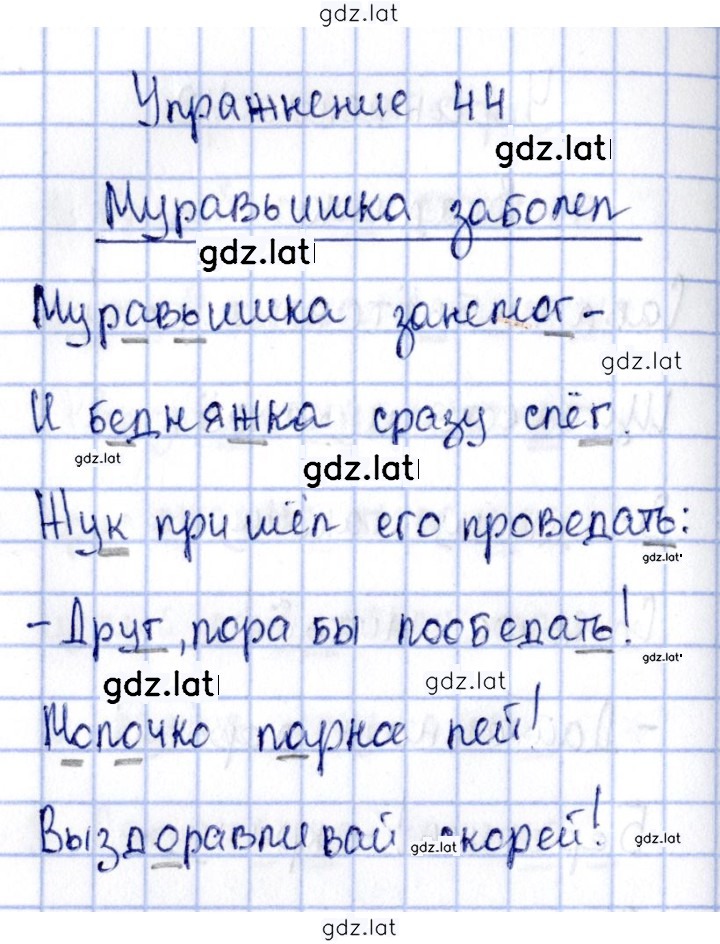 gdz.lat
Упражнение 44
gdz.lat
Муравьишка заболел
gdz.lat
Муравьишка занемог -
gdz.lat
И бедняжка сразу слёг.
gdz.lat
gdz.lat
Жук пришёл его проведать:
gdz.lat
- Друг, пора бы пообедать!
gdz.lat
gdz.lat
gdz.lat
Молочко парное пей!
Выздоравливай скорей!
gdz.lat
gdz.lat
gdz.lat